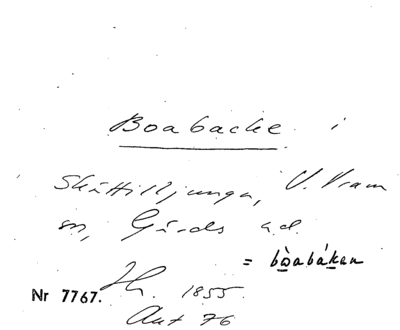 Boabacke i
Skättilljunga, V. Vram
sn, Gärds hd.
= bòabákan
Nr 7767. 1855.
Ant 76